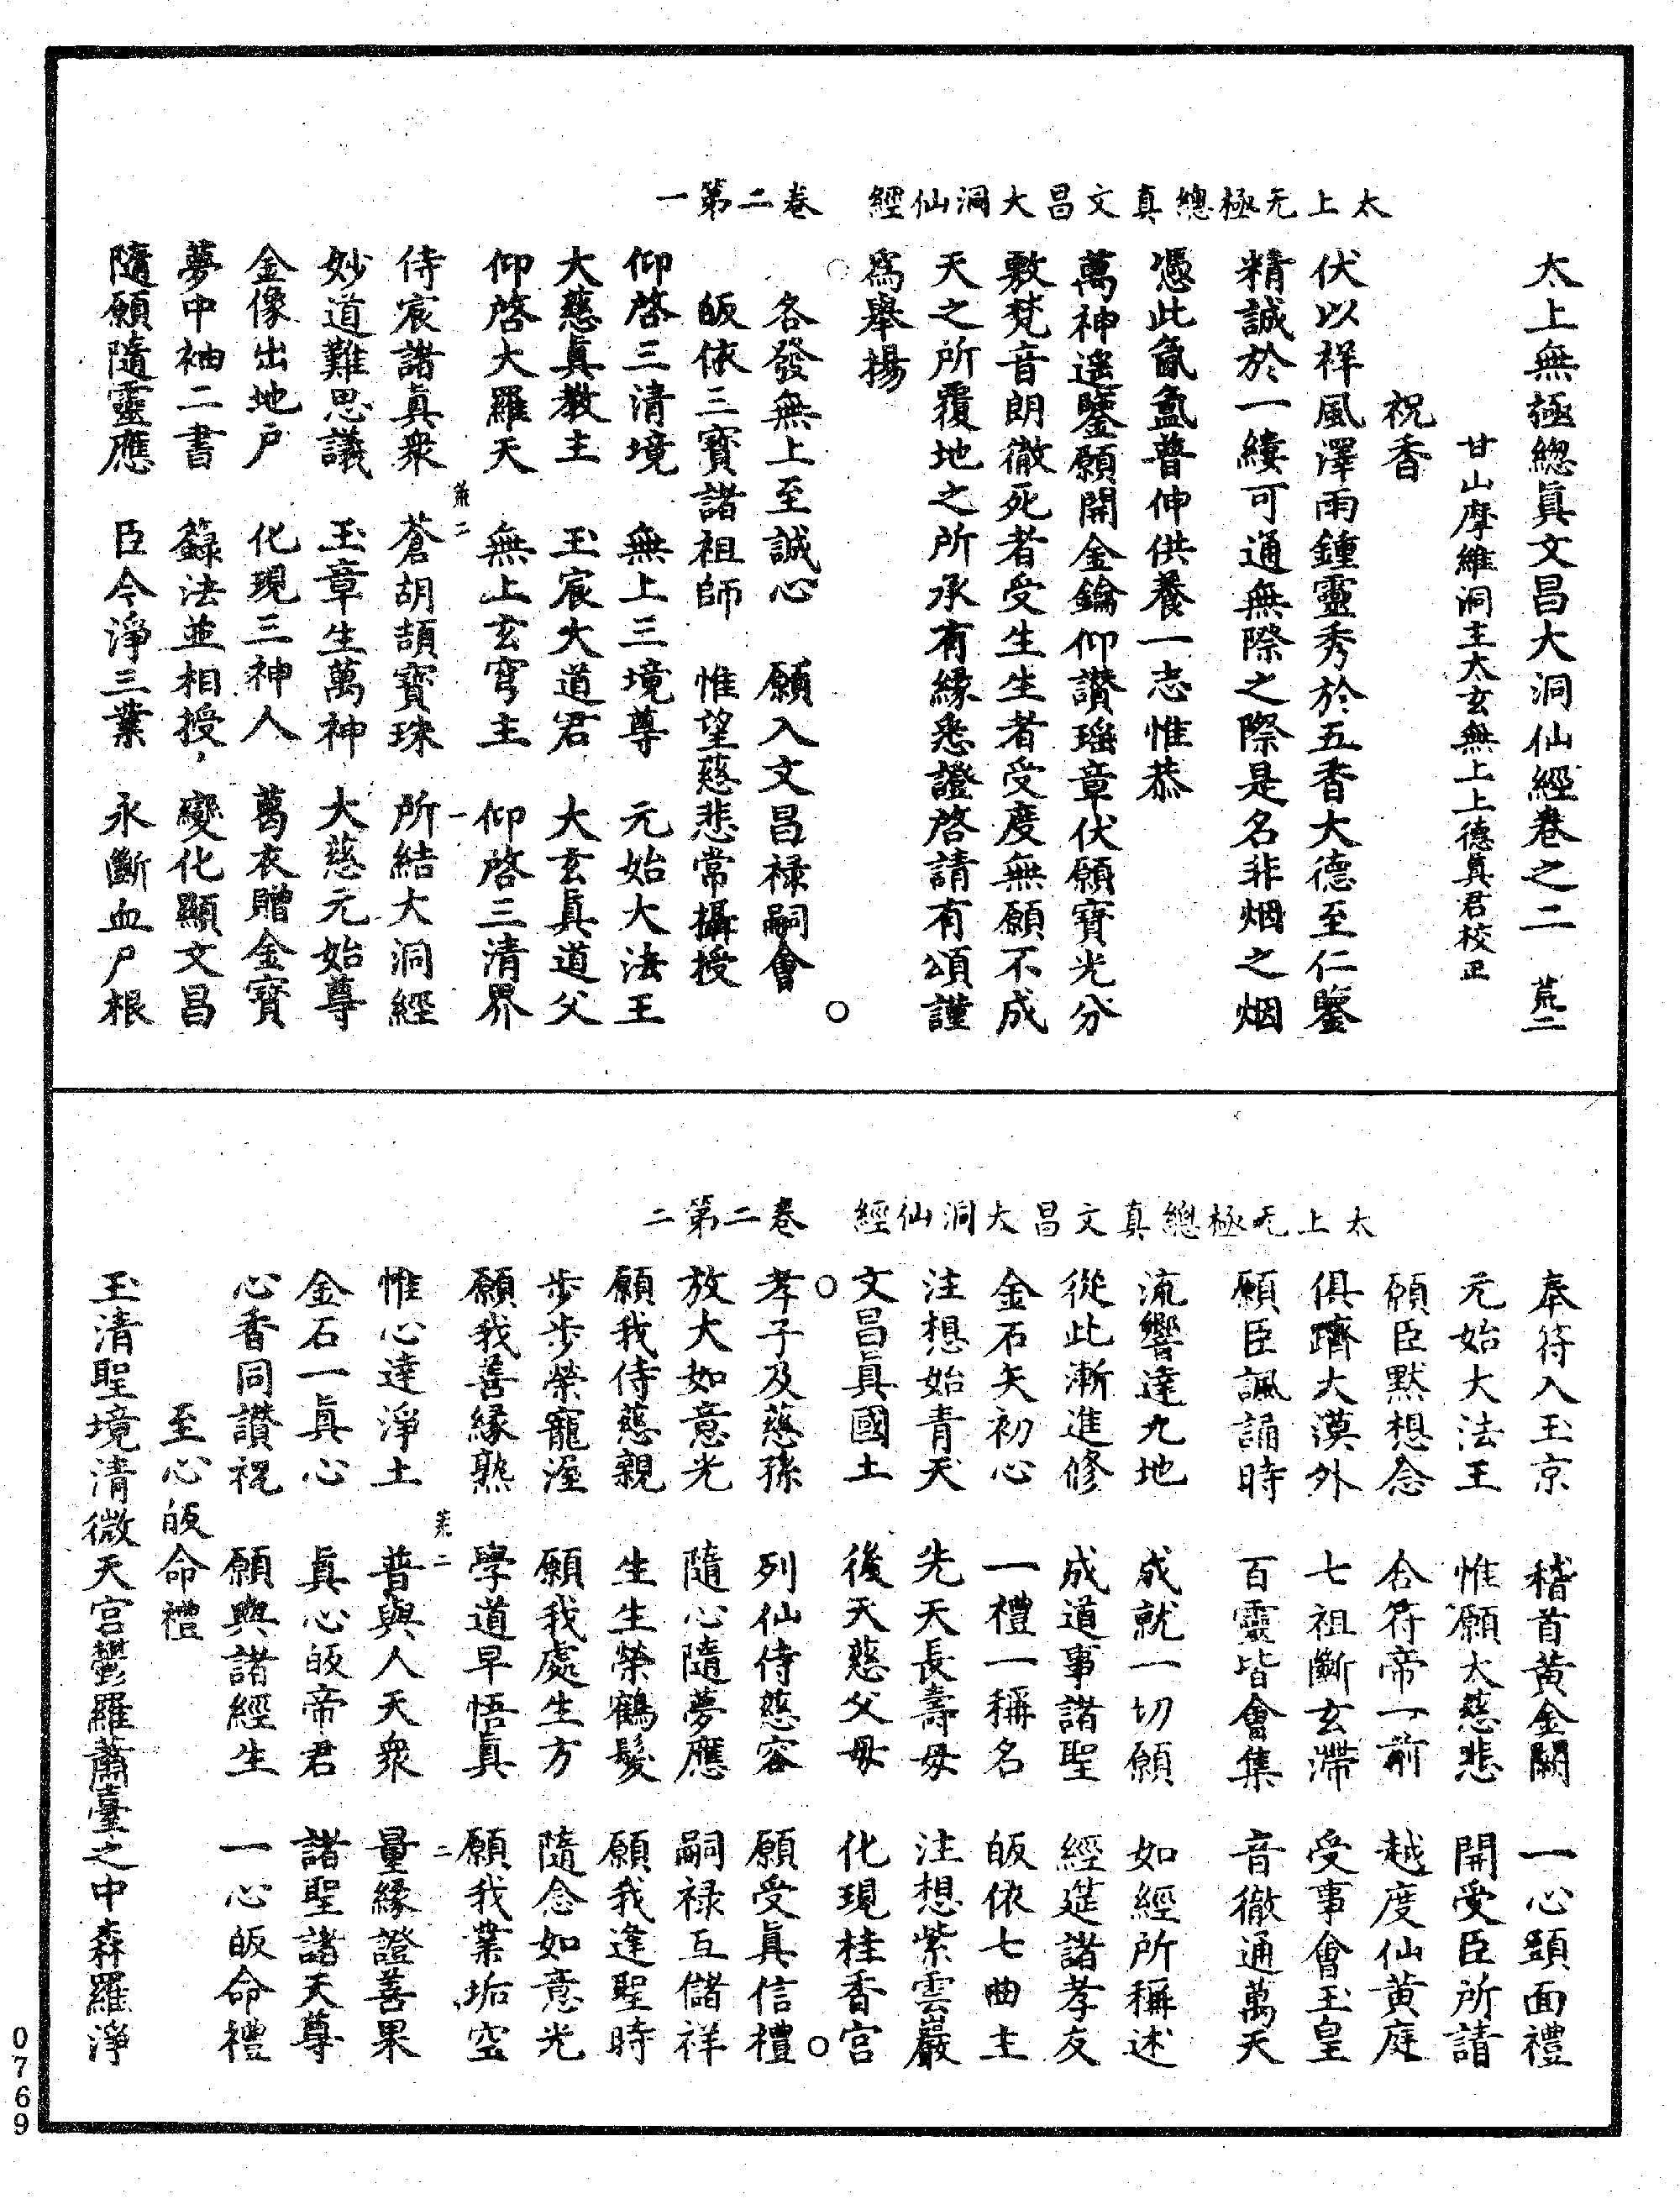 太上无極總真文昌大洞仙經　卷二第一
太上無極總眞文昌大洞仙經卷之二　荒二
甘山摩維洞主太玄無上上德眞君校正
祝香
伏以祥風澤雨鍾靈秀於五香大德至仁鑒
精誠於一縷可通無際之際是名非烟之烟
憑此氤氳普伸供養一志惟恭
萬神遙鑒願開金鑰仰讚瑶章伏願寶光分
敷梵音朗徹死者受生生者受度無願不成
天之所覆地之所承有緣悉證啓請有頌謹
爲舉揚
各發無上至誠心　願入文昌祿嗣會
皈依三寶諸祖師　惟望慈悲常攝授
仰啓三清境　無上三境尊　元始大法王
大慈眞教主　玉宸大道君　大玄眞道父
仰啓大羅天　無上玄穹主　仰啓三清界
荒二　一
侍宸諸眞衆　蒼胡頡寶珠　所結大洞經
妙道難思議　玉章生萬神　大慈元始尊
金像出地戶　化現三神人　葛衣贈金寶
夢中袖二書　籙法並相授　變化顯文昌
隨願隨靈應　臣今淨三業　永斷血尸根
太上无極總真文昌大洞仙經　卷二第二
奉符入玉京　稽首黃金闕　一心頭面禮
元始大法王　惟願大慈悲　開受臣所請
願臣默想念　合符帝一前　越度仙黃庭
俱躋大漠外　七祖斷玄滯　受事會玉皇
願臣諷誦時　百靈皆會集　音徹通萬天
流響達九地　成就一切願　如經所稱述
從此漸進修　成道事諸聖　經筵諸孝友
金石矢初心　一禮一稱名　皈依七曲主
注想始青天　先天長壽母　注想紫雲巖
文昌眞國土　後天慈父母　化現桂香宮
孝子及慈孫　列仙侍慈容　願受眞信禮
放大如意光　隨心隨夢應　嗣祿互儲祥
願我侍慈親　生生榮鶴髮　願我逢聖時
步步榮寵渥　願我處生方　隨念如意光
願我善緣熟　學道早悟眞　願我業垢空
荒二　二
惟心達淨土　普與人天衆　量緣證善果
金石一眞心　眞心皈帝君　諸聖諸天尊
心香同讚祝　願與諸經生　一心皈命禮
至心皈命禮
玉清聖境清微天宮鬱羅蕭臺之中森羅淨
0769